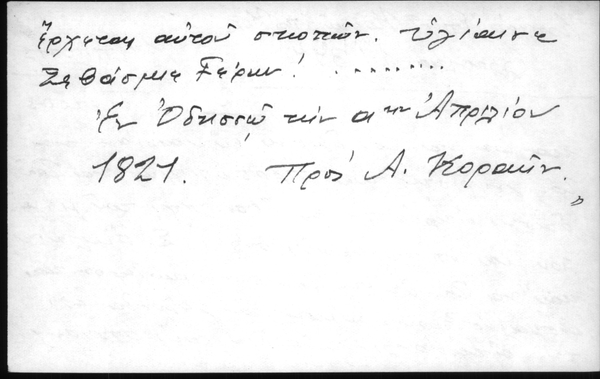 ἔρχεται αὐτοῦ σκοπῶν. Ὑγίαινε
Σεβάσμιε Γέρων! . . . . . . . .
Ἐν Ὀδησσῷ τὴν α την Ἀπριλίου
1821. Πρὸς Α. Κοραῆν.
»